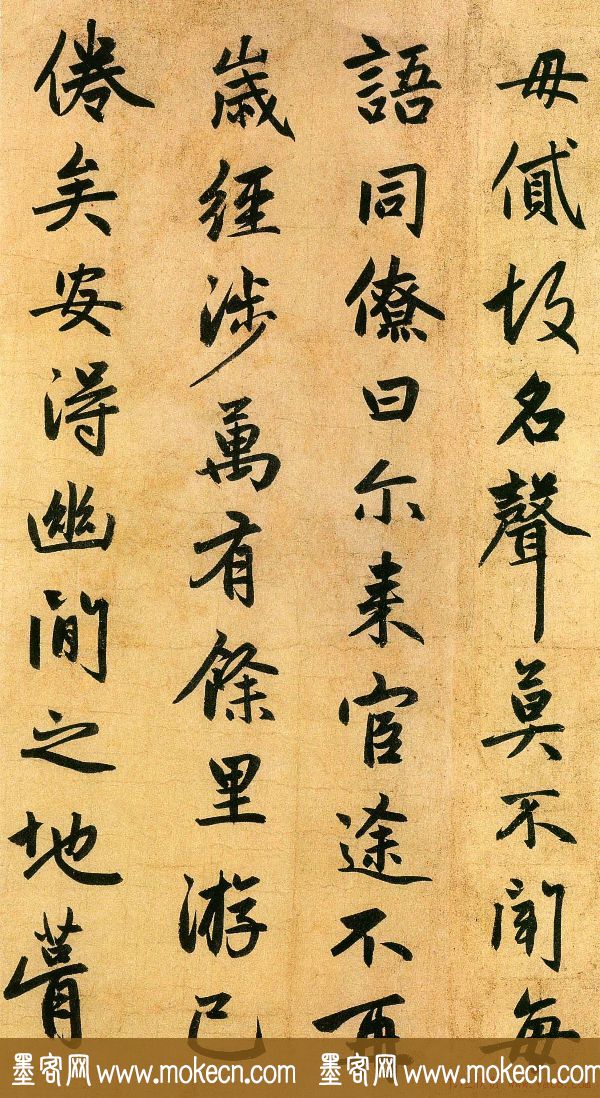 毋貳故名聲莫不聞每
語同僚曰尔来宦途不再
歲經涉萬有餘里游已
倦矣安得幽閒之地
墨客网 www.mokecn.com 墨客网 www.mokecn.com